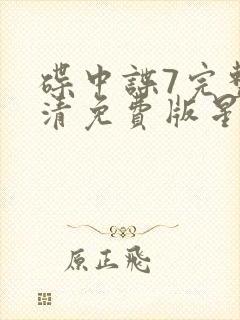 碟中諜7完整
清免費版星
原正飛